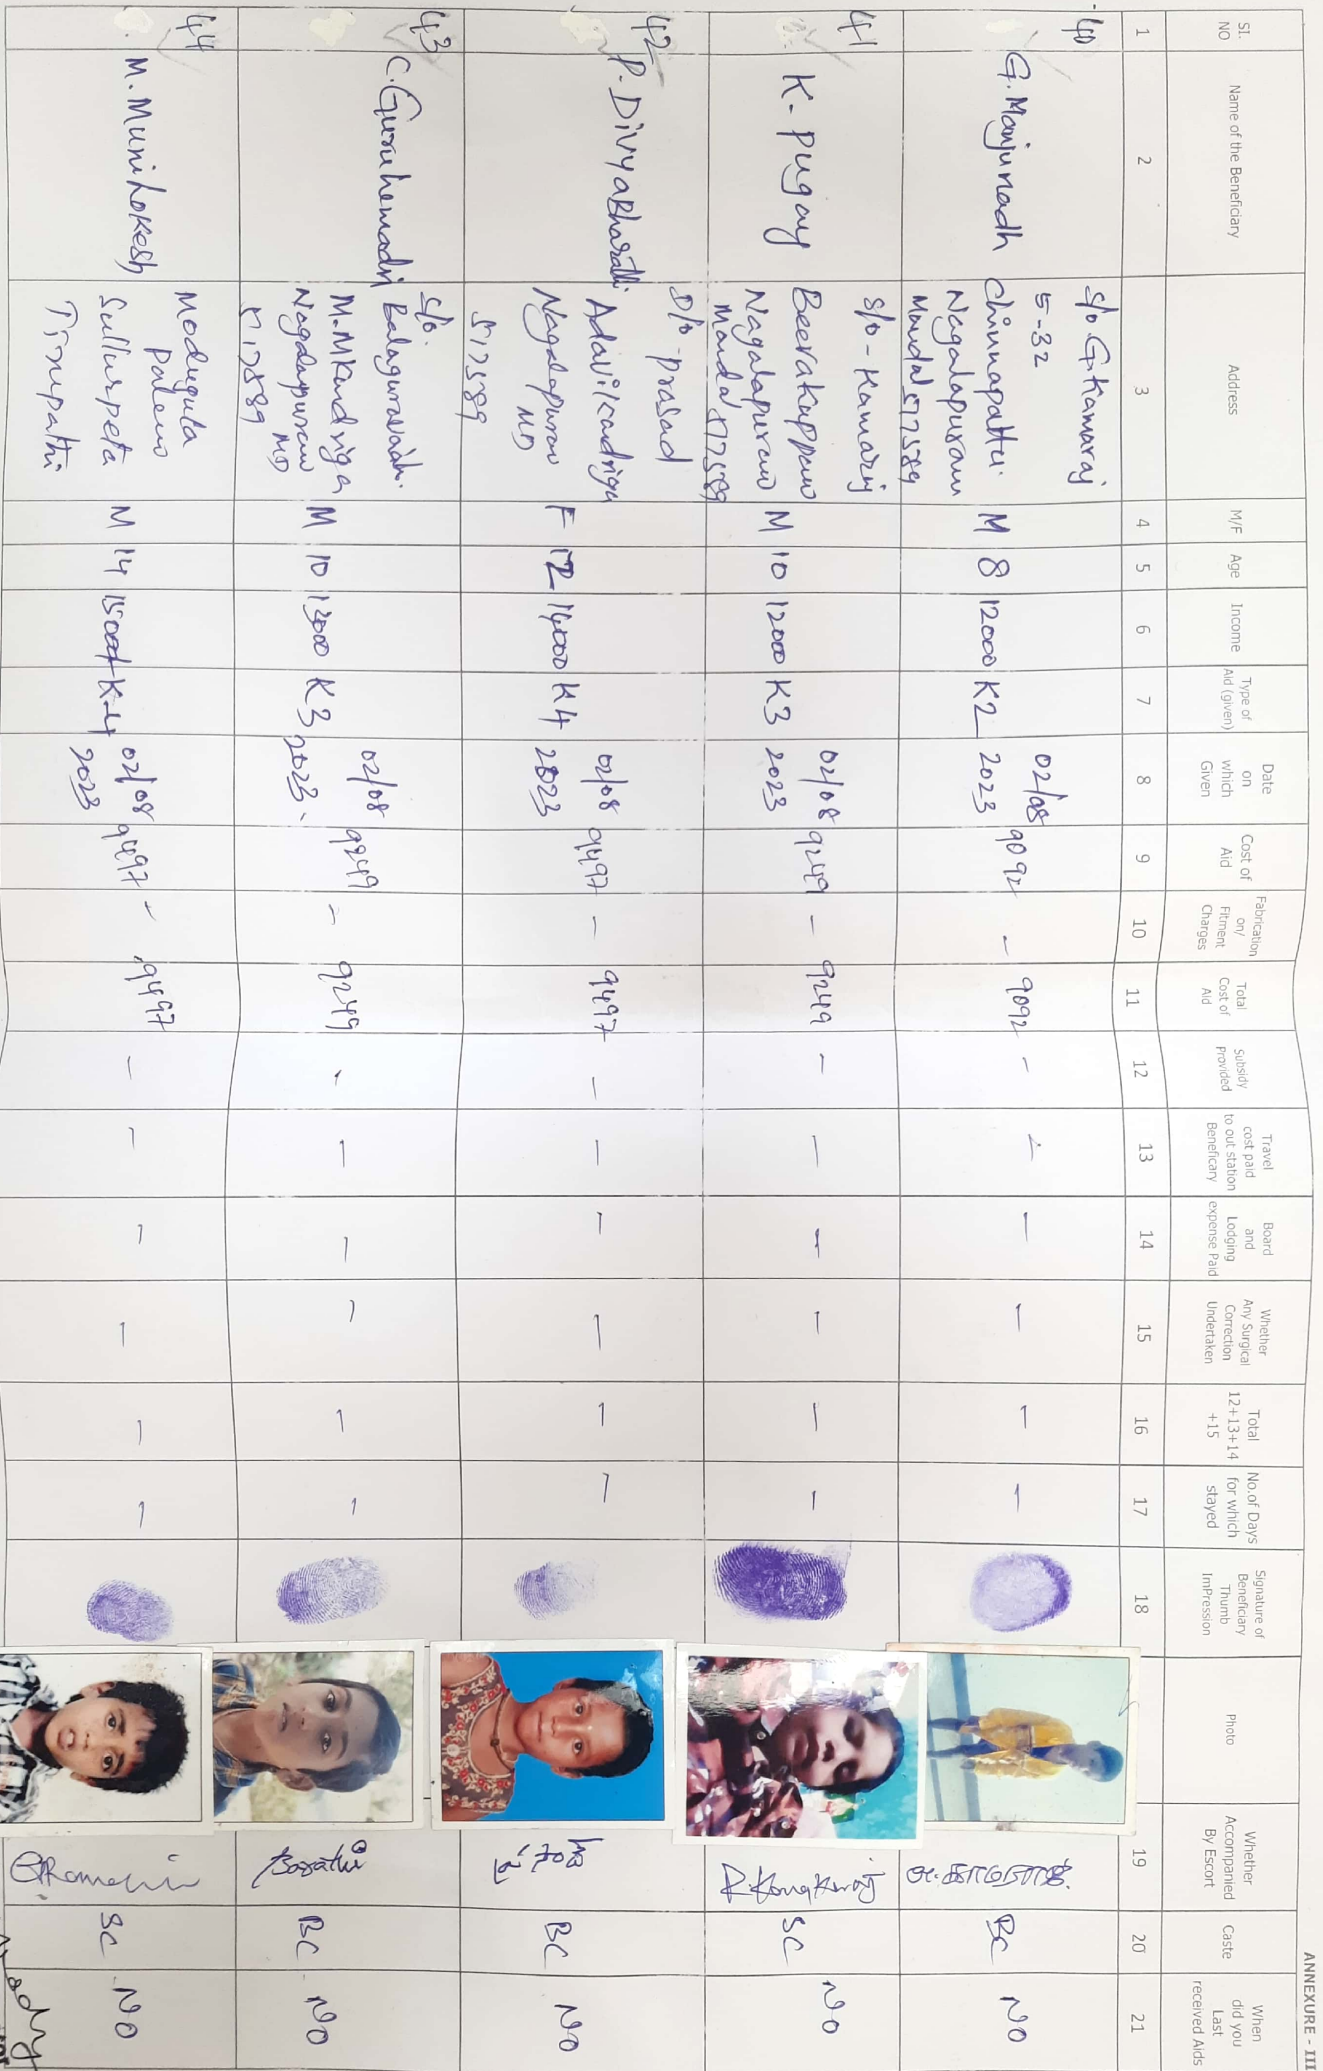 ANNEXURE - III
SI. NO
Name of the Beneficiary
Address
M/F
Age
Income
Type of Aid (given)
Date on which Given
Cost of Aid
Fabrication on/ Fitment Charges
Total Cost of Aid
Subsidy Provided
Travel cost paid to out station Beneficary
Board and Lodging expense Paid
Whether Any Surgical Correction Undertaken
Total 12+13+14 +15
No.of Days for which stayed
Signature of Beneficiary Thumb ImPression
Photo
Whether Accompanied By Escort
Caste
When did you Last received Aids
1 2 3 4 5 6 7 8 9 10 11 12 13 14 15 16 17 18 19 20 21
40
G. Manjunadh
S/o G Kamaraj
5-32
Chinnapattu
Nagalapuram
Mandal 517589
M 8 12000 K2
02/08
2023
9092 - 9092 - - - - - -
BC NO
41
K. Pugay
S/o - Kamaraj
Beerakuppam
Nagalapuram
Mandal 517589
M 10 12000 K3
02/08
2023
9249 - 9249 - - - - - -
SC NO
42
P. DivyaBharathi
D/o - Prasad
Adavikandriga
Nagalapuram
MD
517589
F 12 14000 K4
02/08
2023
9497 - 9497 - - - - - -
BC NO
43
C. Guruhemadri
S/o.
Balaguravaiah.
M.M Kandriga
Nagalapuram
MD
517589
M 10 13000 K3
02/08
2023
9249 - 9249 - - - - - -
Barathi
BC NO
44
M. Munilokesh
Modugula
Palem
Sullurpeta
Tirupathi
M 14 15000 K4
02/08
2023
9497 - 9497 - - - - - -
SC NO